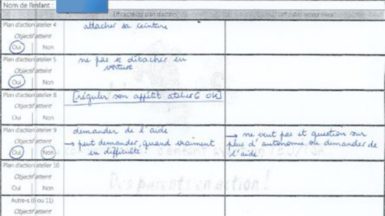 Nom de l'enfant :
Plan d'action atelier 4
attacher sa ceinture
Objectif atteint
Oui Non
Plan d'action atelier 5
ne pas se détacher en
voiture
Objectif atteint
Oui Non
Plan d'action atelier 8
[réguler son appétit atelier 6 OK]
Objectif atteint
Oui Non
Plan d'action atelier 9
demander de l'aide
→ ne veut pas et question sur
Objectif atteint
→ peut demander, quand vraiment
plus d'autonomie ou demander de
Oui Non
en difficulté
l'aide.
Plan d'action atelier 10
Objectif atteint
Oui Non
Autre-s (6 ou 11)
Objectif atteint